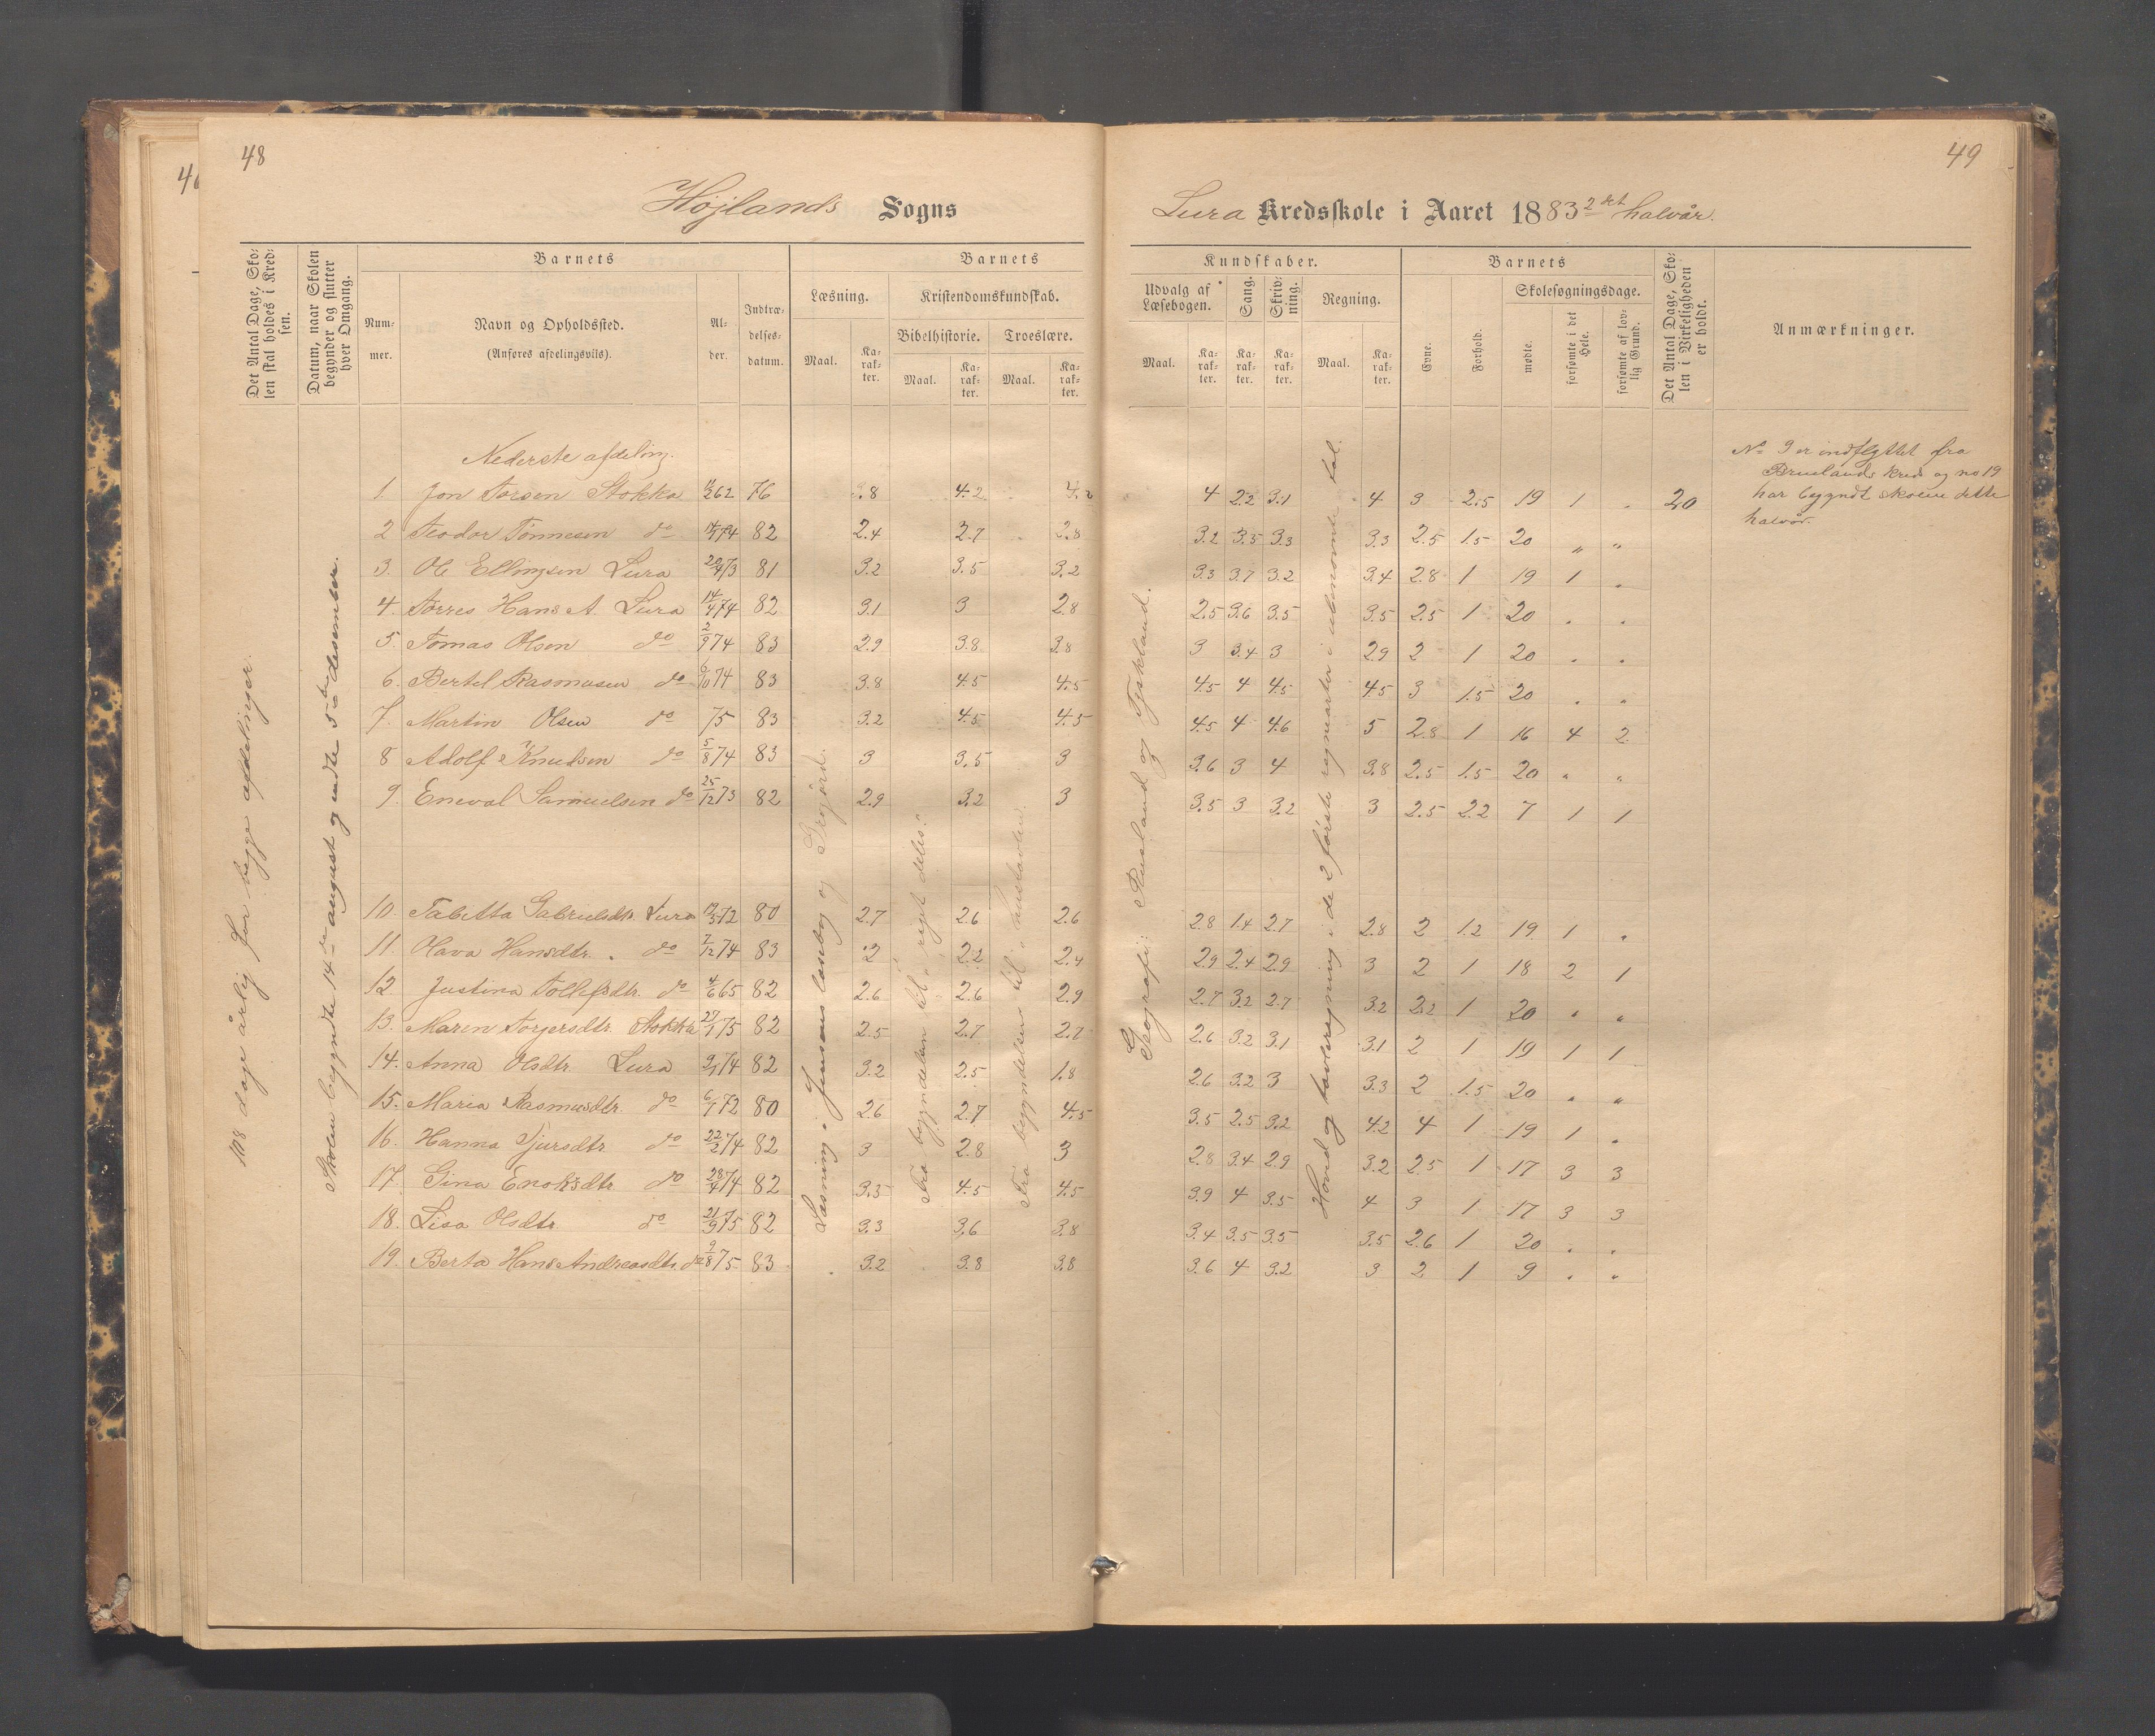 48
49
Højlands Sogns
Lura Kredsskole i Aaret 1883 2det halvår.
Det Antal Dage, Skolen skal holdes i Kredsen.
Datum, naar Skolen begynder og slutter hver Omgang.
Barnets
Nummer.
Navn og Opholdssted.
(Anføres afdelingsvis).
Alder.
Indtrædelsesdatum.
Barnets Kundskaber.
Læsning.
Maal.
Karakter.
Kristendomskundskab.
Bibelhistorie.
Maal.
Karakter.
Troeslære.
Maal.
Karakter.
Udvalg af Læsebogen.
Maal.
Karakter.
Sang.
Karakter.
Skrivning.
Karakter.
Regning.
Maal.
Karakter.
Barnets
Evne.
Forhold.
Skolesøgningsdage.
mødte.
forsømte i det Hele.
forsømte af lovlig Grund.
Det Antal Dage, Skolen i Virkeligheden er holdt.
Anmærkninger.
108 dage årlig for begge afdelinger.
Skolen begyndte 14de august og endte 5te desember.
Læsning i Jensens læsebog og
Fra begyndelsen til
Fra begyndelsen til hustavlen.
Geografi: Rusland og Tyskland.
Hoved og tavleregning i de 2 første regnearter i ubenævnte tal.
Nederste afdeling.
1. Jon Torsen Stokka 76 3.8 4.2 4.2 4 2.2 3.1 4 3 2.5 19 1 " 20
2 Teodor Tønnesen do 14/4 74 82 2.4 2.7 2.8 3.2 3.5 3.3 3.3 2.5 1.5 20 " "
3. Ole Ellingsen Lura 20/4 73 81 3.2 3.5 3.2 3.3 3.7 3.2 3.4 2.8 1 19 1 "
4. Tørres Hans A. Lura 14/4 74 82 3.1 3 2.8 2.5 3.6 3.5 3.5 2.5 1 20 " "
5. Tomas Olsen do 2/9 74 83 2.9 3.8 3.8 3 3.4 3 2.9 2 1 20 " "
6. Bertel Rasmusen do 6/10 74 83 3.8 4.5 4.5 4.5 4 4.5 4.5 3 1.5 20 " "
7. Martin Olsen do 75 83 3.2 4.5 4.5 4.5 4 4.6 5 2.8 1 16 4 2
8 Adolf Knudsen do 5/8 74 83 3 3.5 3 3.6 3 4 3.8 2.5 1.5 20 " "
9. Eneval Samuelsen do 25/12 73 82 2.9 3.2 3 3.5 3 3.2 3 2.5 2.2 7 1 1
10. Tabitta Gabrielsdtr. Lura 19/5 72 80 2.7 2.6 2.6 2.8 1.4 2.7 2.8 2 1.2 19 1 "
11. Olava Hansdtr. do 7/12 74 83 2 2.2 2.4 2.9 2.4 2.9 3 2 1 18 2 1
12 Justina Tollefsdtr. do 4/6 65 82 2.6 2.6 2.9 2.7 3.2 2.7 3.2 2.2 1 20 " "
13. Maren Torgersdtr. Stokka 27/1 75 82 2.5 2.7 2.7 2.6 3.2 3.1 3.1 2 1 19 1 1
14. Anna Olsdtr. Lura 9/1 74 82 3.2 2.5 1.8 2.6 3.2 3 3.3 2 1.5 20 " "
15. Maria Rasmusdtr. do 6/1 72 80 2.6 2.7 4.5 3.5 2.5 3.2 4.2 4 1 19 1 "
16. Hanna Sjursdtr. do 22/2 74 82 3 2.8 3 2.8 3.4 2.9 3.2 2.5 1 17 3 3
17. Gina Enoksdtr. do 28/4 74 82 3.3 4.5 4.5 3.9 4 3.5 4 3 1 17 3 3
18. Lisa Olsdtr. do 21/9 75 82 3.3 3.6 3.8 3.4 3.5 3.5 3.5 2.6 1 20 " "
19. Berta Hans Andreasdtr. do 9/8 75 83 3.2 3.8 3.8 3.6 4 3.2 3 2 1 9 " "
No 9 er indflyttet fra
Bruelands kreds og no 19
har begyndt skolen dette
halvår.